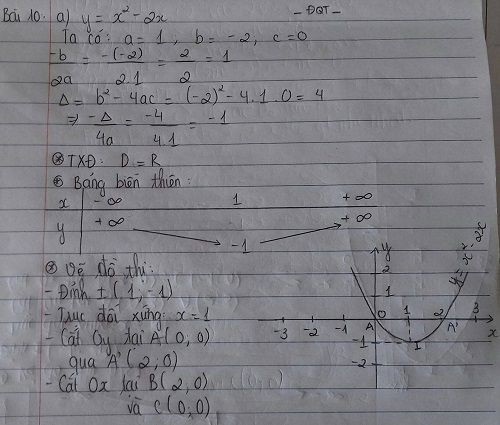 Bài 10: a) y = x² - 2x   - ĐQT -
Ta có: a = 1, b = -2, c = 0
-b/2a = -(-2)/2.1 = 2/2 = 1
Δ = b² - 4ac = (-2)² - 4.1.0 = 4
⇒ -Δ/4a = -4/4.1 = -1
⊛ TXĐ: D = R
⊛ Bảng biến thiên:
x   -∞   1   +∞
y   +∞   -1   +∞
⊛ Vẽ đồ thị:
- Đỉnh I(1, -1)
- Trục đối xứng: x = 1
- Cắt Oy tại A(0, 0)
qua A'(2, 0)
- Cắt Ox tại B(2, 0)
và C(0, 0)
y
y = x² - 2x
2
1
-3 -2 -1 A O 1 2 A' 3 x
-1 1
-2